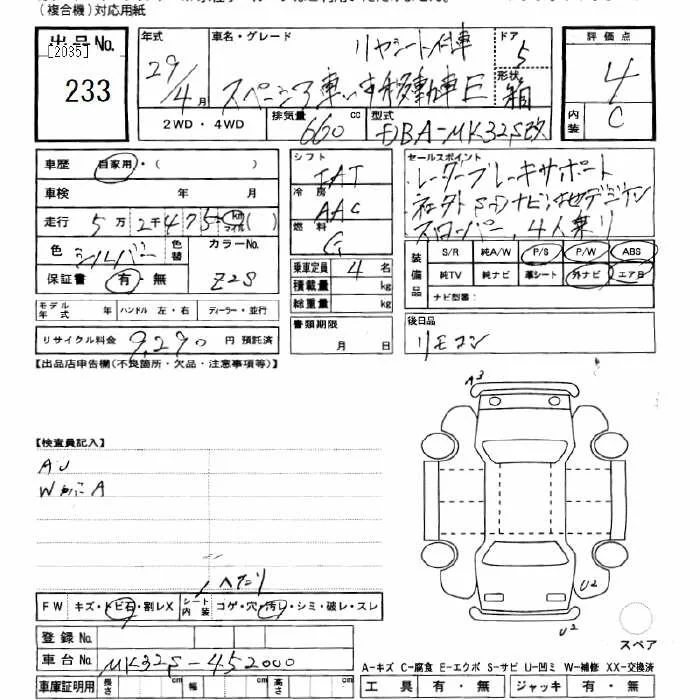 (複合機)対応用紙
出品No.
[2035]
233
年式
29/4月
車名・グレード
リヤシート付車
スペーシア車いす移動車E
ドア
5
形状
箱
2WD・4WD
排気量 660 cc
型式 DBA-MK32S改
評価点
4
内装
C
車歴 自家用・( )
車検 年 月
走行 5万2千475 km マイル ( )
色 シルバー 色替
カラーNo. Z2S
保証書 有・無
モデル年式 年 ハンドル 左・右 ディーラー・並行
リサイクル料金 9,290 円 預託済
シフト
IAT
冷房
AAC
燃料
G
乗車定員 4 名
積載量 kg
総重量 kg
書類期限
月 日
セールスポイント
レーダーブレーキサポート
社外SDナビ
スローパー、4人乗り
装備品
S/R 純A/W P/S P/W ABS
純TV 純ナビ 革シート 外ナビ エアB
ナビ型番:
後日品
リモコン
【出品店申告欄(不良箇所・欠品・注意事項等)】
【検査員記入】
AU
WカにA
ヘタリ
FW キズ・トビ石・割レX シート内装 コゲ・穴・汚レ・シミ・破レ・スレ
登録No.
車台No. MK32S-452000
車庫証明用 長さ cm 幅 cm 高さ cm
A3
U2
U2
スペア
A-キズ C-腐食 E-エクボ S-サビ U-凹ミ W-補修 XX-交換済
工具 有・無 ジャッキ 有・無